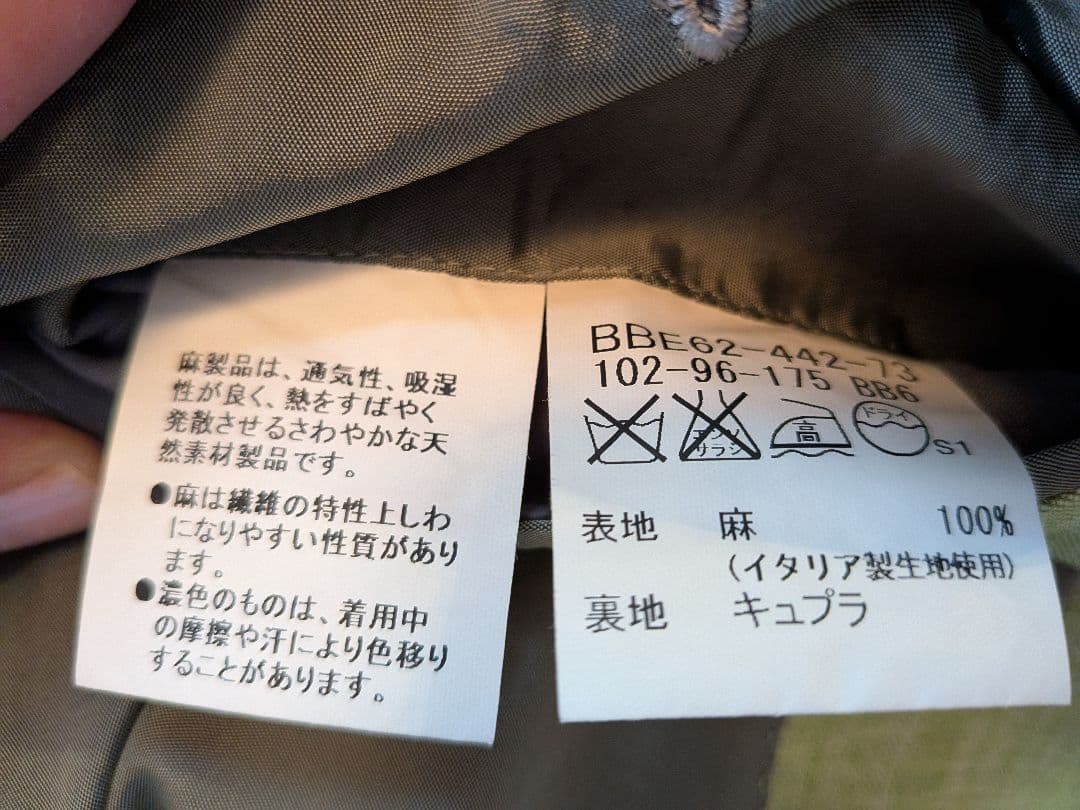 麻製品は、通気性、吸湿
性が良く、熱をすばやく
発散させるさわやかな天
然素材製品です。
●麻は繊維の特性上しわ
になりやすい性質があり
ます。
●濃色のものは、着用中
の摩擦や汗により色移り
することがあります。
BBE62-442-73
102-96-175 BB6
エンソ
サラシ
高
ドライ
S1
表地 麻 100%
(イタリア製生地使用)
裏地 キュプラ